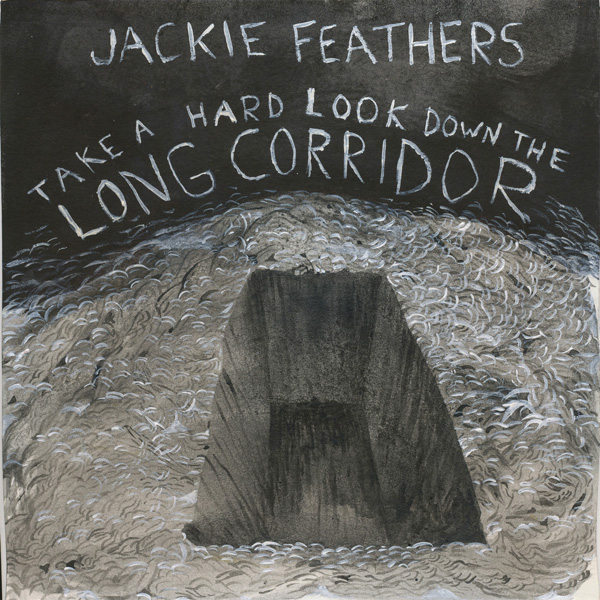 JACKIE FEATHERS
TAKE A HARD LOOK DOWN THE
LONG CORRIDOR